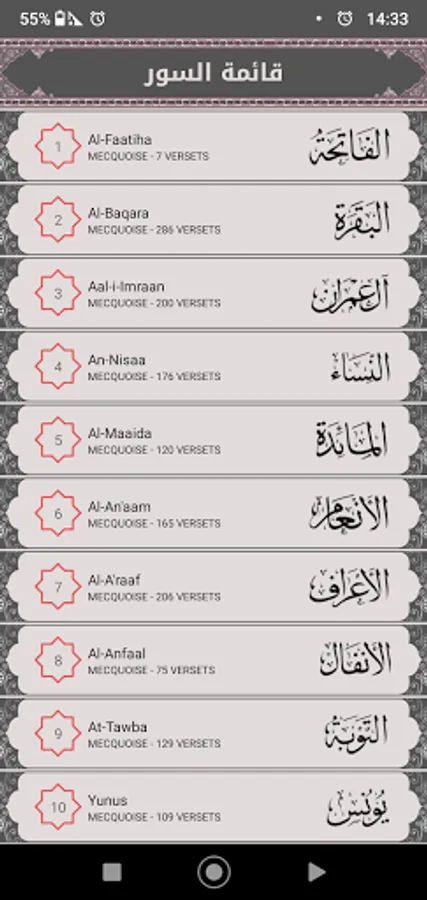 55%
14:33
قائمة السور
1
Al-Faatiha
MECQUOISE - 7 VERSETS
الفَاتِحَةُ
2
Al-Baqara
MECQUOISE - 286 VERSETS
البَقَرَة
3
Aal-i-Imraan
MECQUOISE - 200 VERSETS
آل عِمرَان
4
An-Nisaa
MECQUOISE - 176 VERSETS
النِّسَاء
5
Al-Maaida
MECQUOISE - 120 VERSETS
المَائدة
6
Al-An'aam
MECQUOISE - 165 VERSETS
الأنعَام
7
Al-A'raaf
MECQUOISE - 206 VERSETS
الأعرَاف
8
Al-Anfaal
MECQUOISE - 75 VERSETS
الأنفَال
9
At-Tawba
MECQUOISE - 129 VERSETS
التوبَة
10
Yunus
MECQUOISE - 109 VERSETS
يُونُس